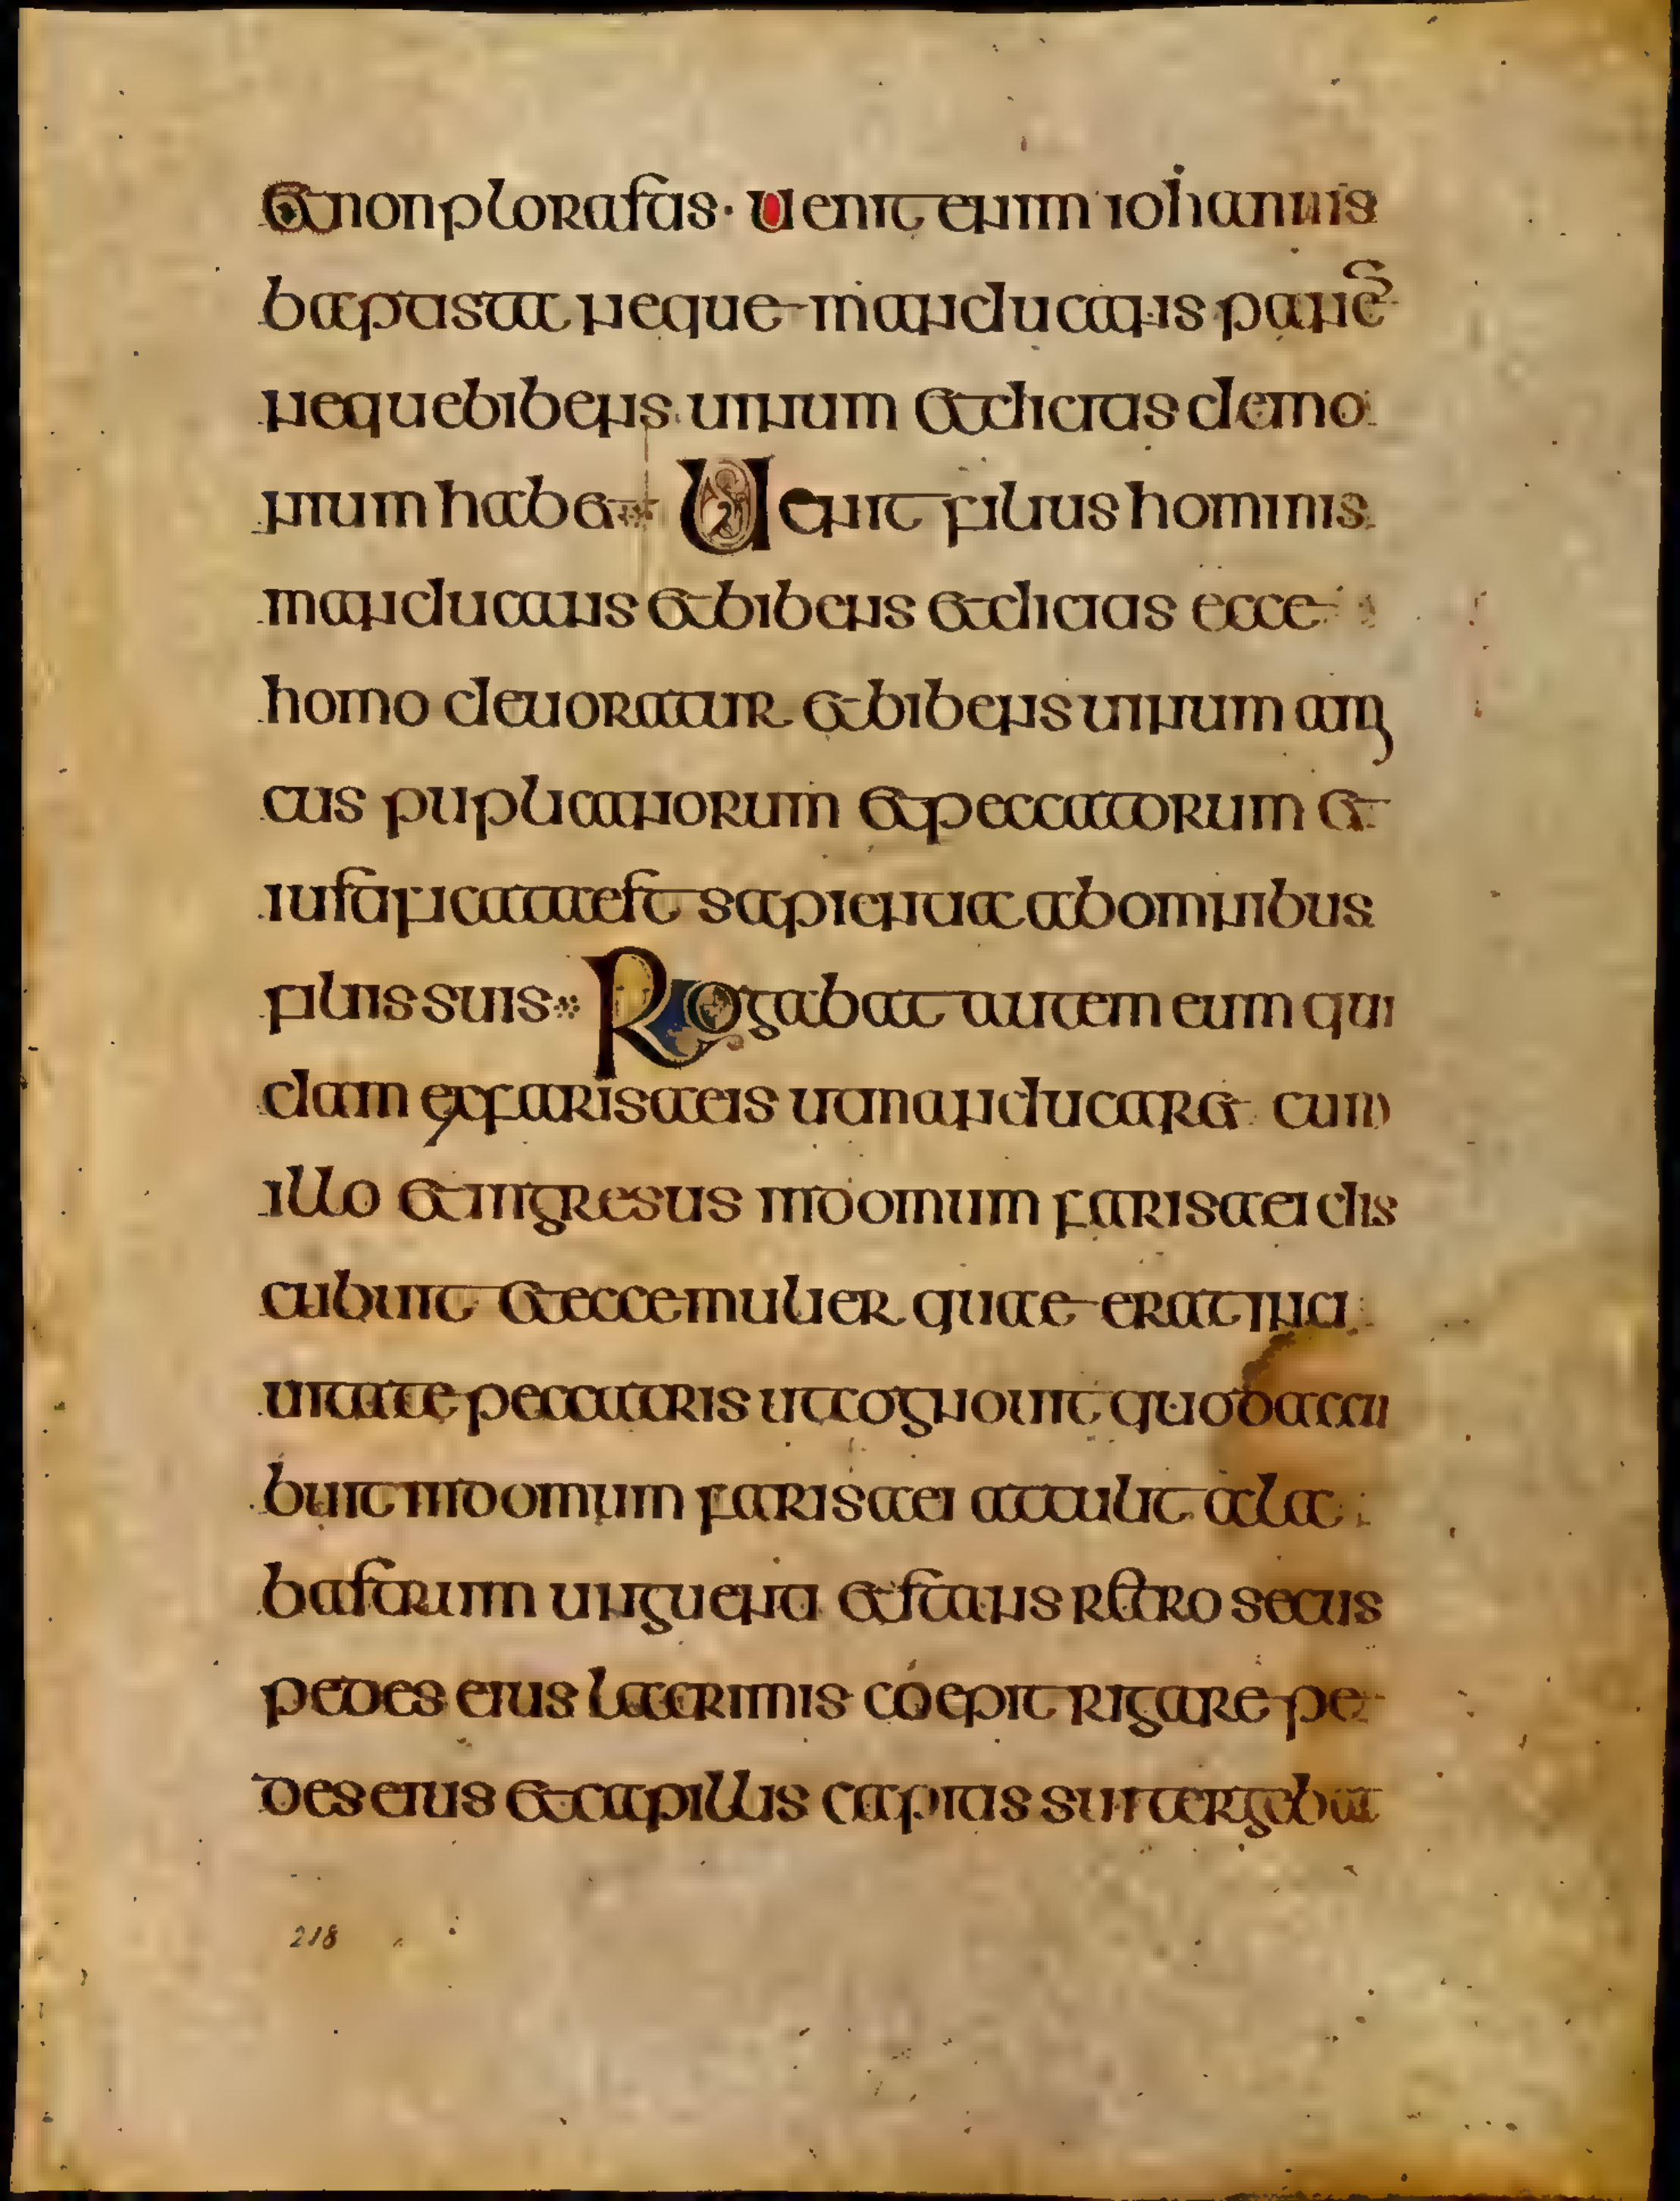 & non plorastis · Uenit enim iohannis
baptista neque manducans panē
neque bibens uinum & dicitis demo
nium hab& Uenit filius hominis
manducans & bibens & dicitis ecce
homo deuoratur & bibens uinum ami
cus puplicanorum & peccatorum &
iustificata est sapientia ab ominibus
filiis suis Rogabat autem eum qui
dam ex farisaeis ut manducar& cum
illo & ingresus in domum farisaei dis
cubuit & ecce mulier quae erat in ci
uitate peccatris ut cognouit quod accu
buit in domum farisaei attulit ala
bastrum unguenti & stans r&ro secus
pedes eius lacrimis coepit rigare pe
des eius & capillis capitis sui tergebat
218